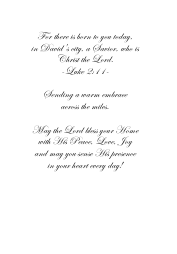 For there is born to you today,
in David's city, a Savior, who is
Christ the Lord.
-Luke 2:11-
Sending a warm embrace
across the miles.
May the Lord bless your Home
with His Peace, Love, Joy
and may you sense His presence
in your heart every day!